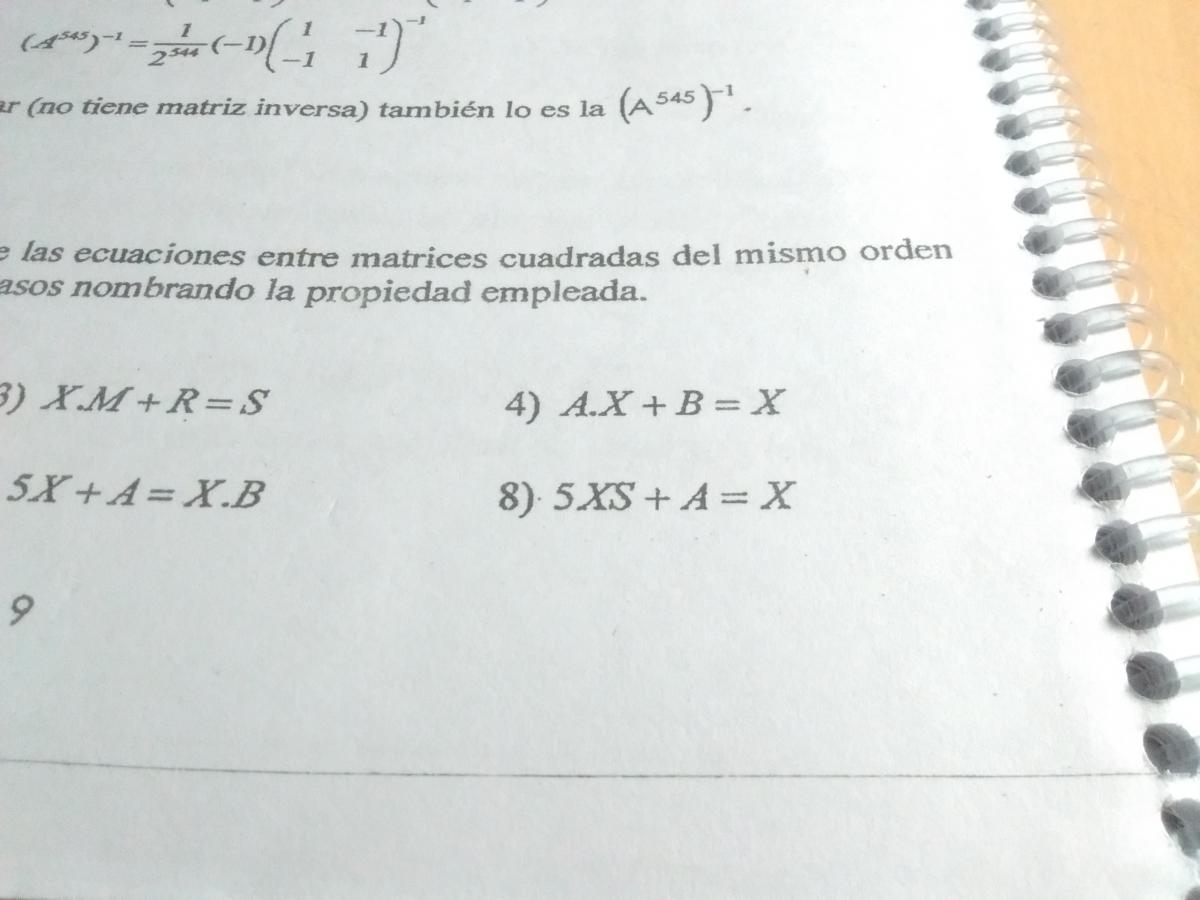 (A⁵⁴⁵)⁻¹ = 1/2⁵⁴⁴ (−1) ( 1 −1 −1 1 )⁻¹
(no tiene matriz inversa) también lo es la (A⁵⁴⁵)⁻¹ .
las ecuaciones entre matrices cuadradas del mismo orden
nombrando la propiedad empleada.
3) X.M + R = S 4) A.X + B = X
5X + A = X.B 8) 5XS + A = X
9